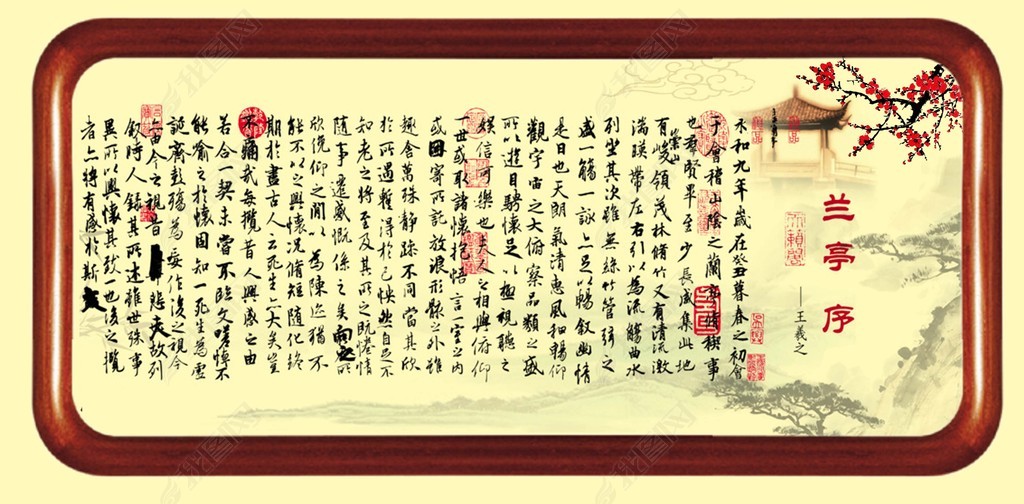 兰亭序
——王羲之
永和九年歲在癸丑暮春之初會
于會稽山陰之蘭亭脩稧事
也羣賢畢至少長咸集此地
有崇山峻領茂林脩竹又有清流激
湍暎帶左右引以為流觴曲水
列坐其次雖無絲竹管弦之
盛一觴一詠亦足以暢敘幽情
是日也天朗氣清惠風和暢仰
觀宇宙之大俯察品類之盛
所以遊目騁懷足以極視聽之
娛信可樂也夫人之相與俯仰
一世或取諸懷抱悟言一室之內
或因寄所託放浪形骸之外雖
趣舍萬殊靜躁不同當其欣
於所遇蹔得於己怏然自足不
知老之將至及其所之既惓情
隨事遷感慨係之矣向之所
欣俛仰之閒以為陳迹猶不
能不以之興懷況脩短隨化終
期於盡古人云死生亦大矣豈
不痛哉每攬昔人興感之由
若合一契未嘗不臨文嗟悼不
能喻之於懷固知一死生為虛
誕齊彭殤為妄作後之視今
亦由今之視昔悲夫故列
敘時人錄其所述雖世殊事
異所以興懷其致一也後之攬
者亦將有感於斯文